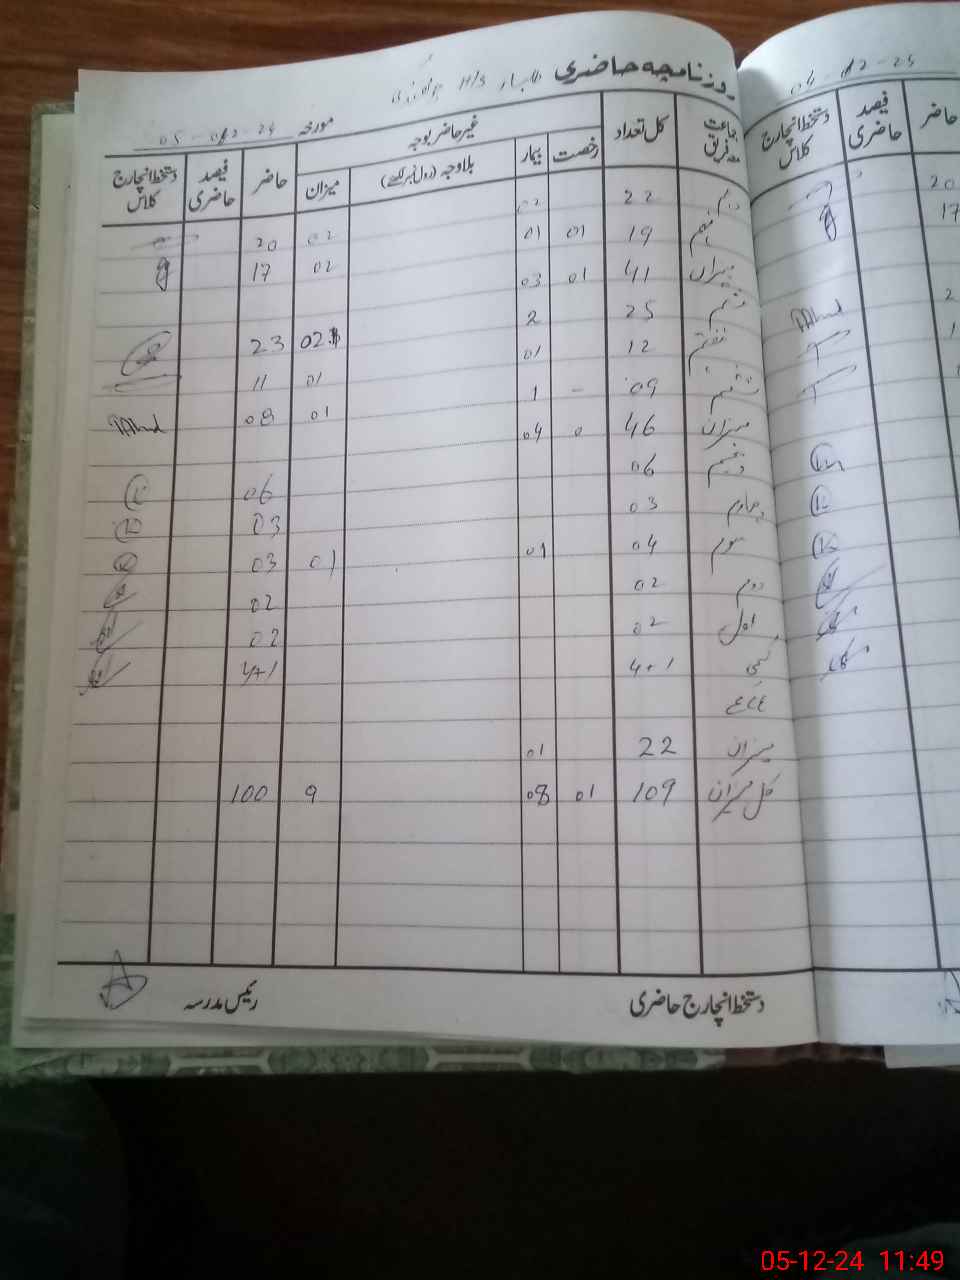 روزنامچہ حاضری طلباء H/S
مورخہ 05-012-24
جماعت معہ فریق کل تعداد غیر حاضر بوجہ حاضر فیصد حاضری دستخط انچارج کلاس
رخصت بیمار بلاوجہ (رول نمبر لکھئے) میزان
دہم 22 02 02 20
نہم 19 01 01 02 17
میزان 41 01 03
ہشتم 25 2 02 23
ہفتم 12 01 01 11
ششم 09 - 1 01 08
میزان 46 0 04
پنجم 06 06
چہارم 03 03
سوم 04 01 01 03
دوم 02 02
اول 02 02
4+1 4+1
میزان 22 01
کل میزان 109 01 08 9 100
دستخط انچارج حاضری رئیس مدرسہ
04-12-24
حاضر فیصد حاضری دستخط انچارج کلاس
20
17
2
1
05-12-24 11:49